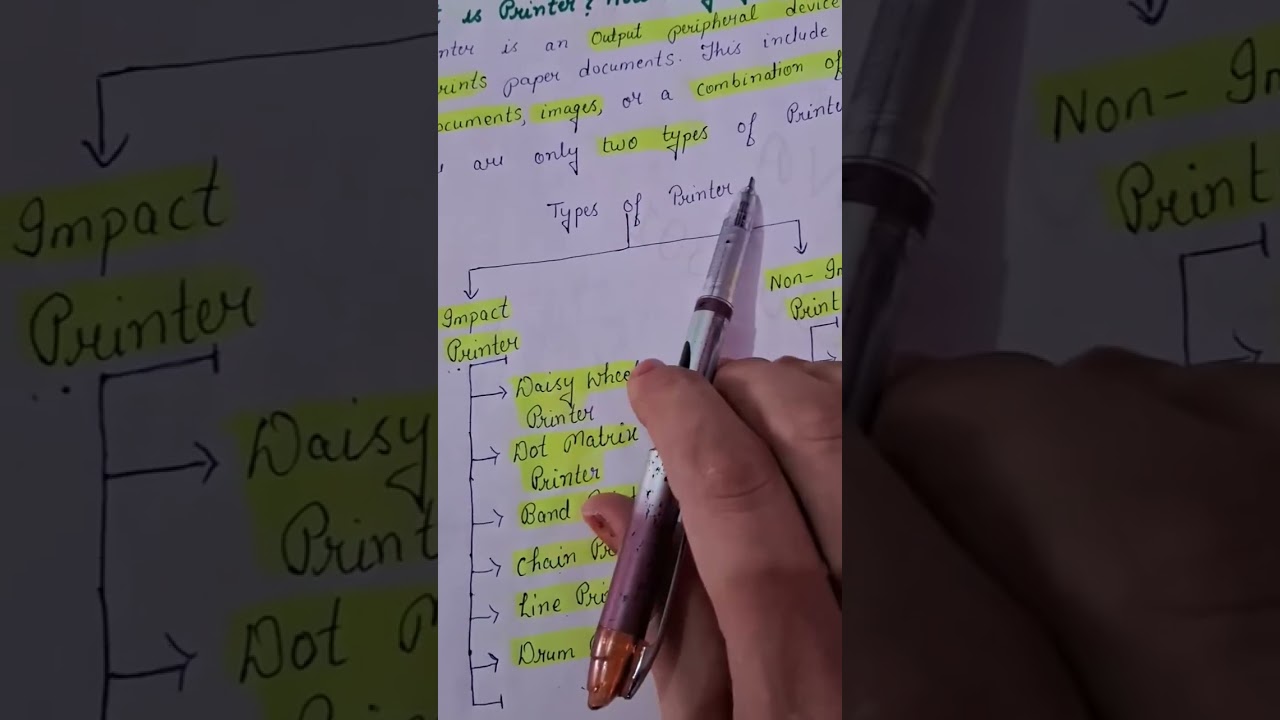 is Printer?
nter is an Output peripheral device
rints paper documents. This include
ocuments, images, or a combination of
are only two types of Printe
Types of Printer
Impact
Printer
Non- Im
Print
Daisy Whee
Printer
Dot Matrix
Printer
Band
Chain Pr
Line Pri
Drum
Impact
Printer
Daisy
Print
Dot M
Non- Im
Print